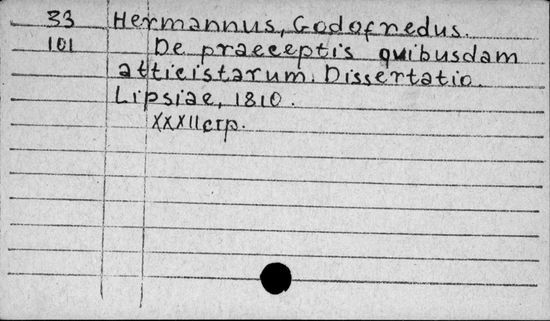 33 Hermannus, Godofredus.
101 De praeceptis quibusdam
atticistarum. Dissertatio.
Lipsiae, 1810.
XXXII стр.